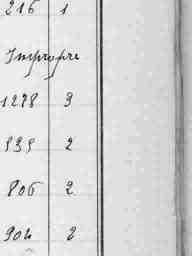 216 1
Impropre
1278 3
939 2
806 2
904 2